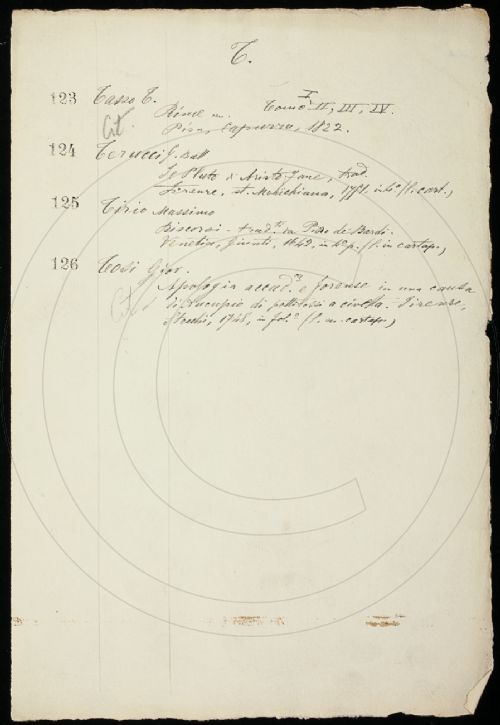 T.
123 Tasso T.
Cit Rime Tomo I II, III, IV.
Pisa, Capurro, 1822.
124 Terucci G. Batt
Il Pluto di Aristofane, trad.
Firenze, st. 1751. in 4° (l. cart.)
125 Tirio Massimo
Discorsi - trad. da Piero de Bardi.
Venetia, Giunti, 1642, in 4° p. (l. in cartap.)
126 Tosi Giov.
Apologia accad.ca e forense in una causa
Cit d'Aucupio di pettirossi a civetta. Firenze,
Stecchi, 1748, in fol.° (l. in cartap.)